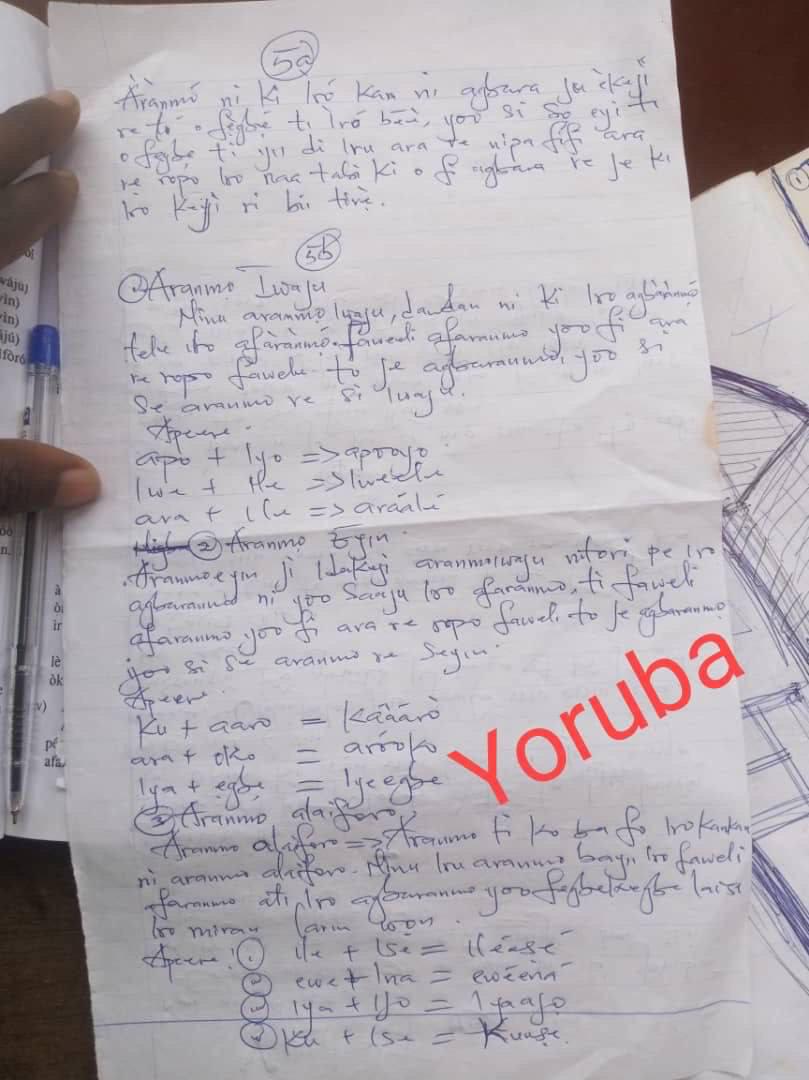 5a
Àrànmó ni kí Iró kan ni agbara ju èkejì
re tó o fẹgbẹ ti Iró bẹẹ, yoo si sọ eyi ti
o fẹgbẹ ti yii di Iru ara re nipa fifi ara
re ropo Iro naa tabi ki o fi agbara re je ki
Iro Keyì ri bii tirẹ.
5b
① Aranmo Iwaju
Ninu aranmo Iwaju, dandan ni ki Iro agbàrànmó
tele iro afàrànmó. fawelì afaranmo yoo fi ara
re ropo faweli to je agbaranmo, yoo si
Se aranmo re si Iwaju.
Apeere.
apo + Iyo => apooyo
Iwe + Ile => Iwéèlé
ara + Ile => aráálé
② Aranmo Eyin
Aranmo eyin jì Idakeji aranmo iwaju nitori pe Iro
agbaranmo ni yoo Saaju Iro afaranmo, ti faweli
afaranmo yoo fi ara re ropo faweli to je agbaranmo
yoo si Se aranmo re Seyin.
Apeere.
Ku + aaro = Káàárò
ara + oko = aróoko
Iya + ẹgbẹ = Iyeegbe
③ Aranmo alaiforo
Aranmo alaiforo => Aranmo ti ko ba fo Iro kankan
ni aranmo alaiforo. Ninu Iru aranmo bayii Iro faweli
afaranmo ati Iro agbaranmo yoo fegbekegbe laisi
Iro miran larin won.
Apeere! ① Ile + Ise = Iléesé
ewe + Ina = ewéená
Iya + Ijo = Iyaajo
Ku + Ise = Kuuse.
wájú)
yìn)
yìn)
ájú)
ifòró
n.
à
lè
òk
v)
pé
afa
①
Yoruba